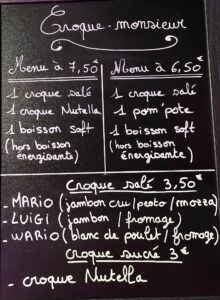 Croque-monsieur
Menu à 7,50€
1 croque salé
1 croque Nutella
1 boisson soft
(hors boisson
énergisante)
Menu à 6,50€
1 croque salé
1 pom'pote
1 boisson soft
(hors boisson
énergisante)
Croque salé 3,50€
- MARIO (jambon cru/pesto/mozza)
- LUIGI (jambon / fromage)
- WARIO (blanc de poulet / fromage)
Croque sucré 3€
- croque Nutella